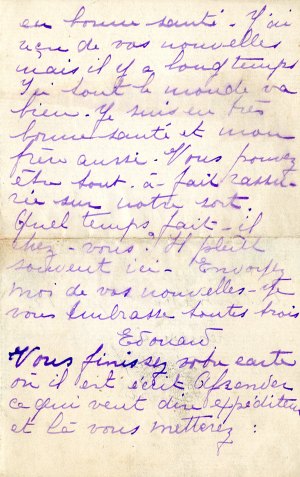 en bonne santé. J'ai
reçu de vos nouvelles
mais il y a longtemps
Ici tout le monde va
bien. Je suis en très
bonne santé et mon
frère aussi. Vous pouvez
être tout-à-fait rassu-
rée sur notre sort.
Quel temps fait-il
chez-vous. Il pleut
souvent ici- Envoyez
moi de vos nouvelles- Je
vous embrasse toutes trois
Edouard
Vous finissez votre carte
où il est écrit Afsender
ce qui veut dire expéditeur
et là vous metterez :